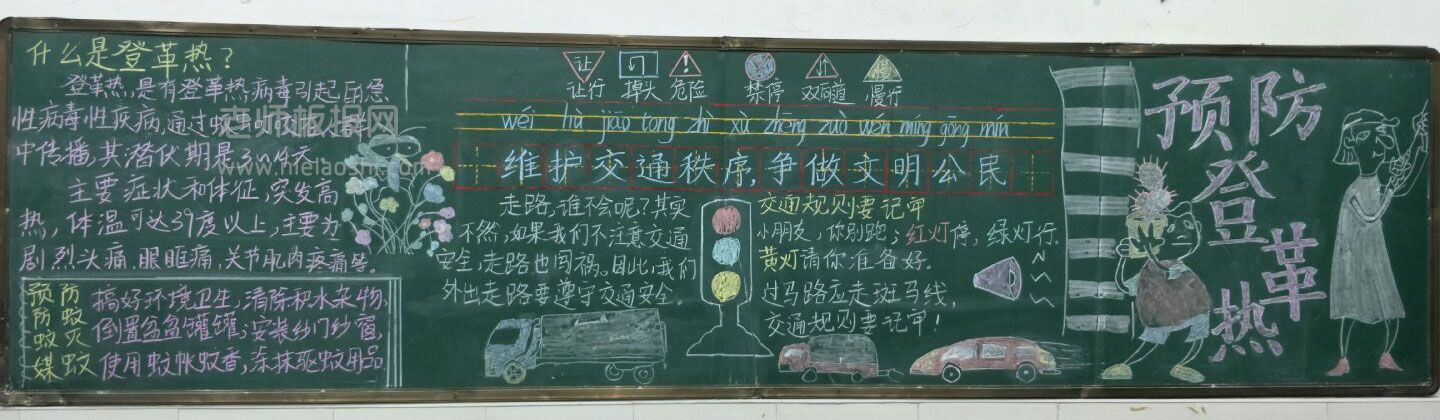 什么是登革热？
登革热,是有登革热病毒引起的急
性病毒性疾病,通过蚊虫叮咬在人群
中传播,其潜伏期是3~14天
主要症状和体征,突发高
热,体温可达39度以上,主要为
剧烈头痛、眼眶痛、关节肌肉疼痛等。
预防 搞好环境卫生,清除积水杂物,
防蚊 倒置盆盆罐罐;安装纱门纱窗,
蚊灭
媒蚊 使用蚊帐蚊香,涂抹驱蚊用品
老师板报网
www.melaoshi.com
让
让行 掉头 危险 禁停 双向道 慢行
慢
wéi hù jiāo tōng zhì xù zhēng zuò wén míng gōng mín
维护交通秩序,争做文明公民
走路,谁不会呢?其实
不然,如果我们不注意交通
安全,走路也闯祸。因此,我们
外出走路要遵守交通安全。
交通规则要记牢
小朋友,你别跑;红灯停,绿灯行.
黄灯请你准备好。
过马路应走斑马线,
交通规则要记牢!
预防
登革热